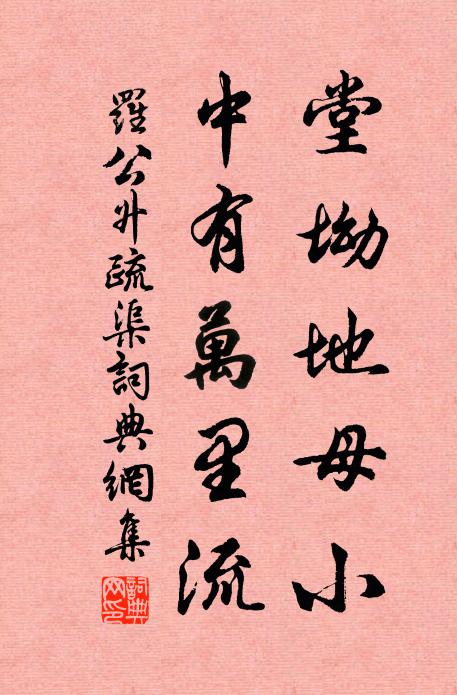 堂坳地毋小
中有萬里流
羅公外疏渠詞典網集
詞典網印